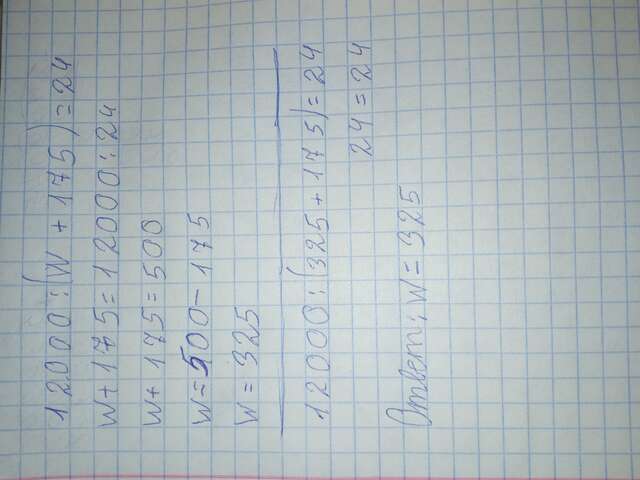 12000:(W + 175) = 24
W+175=12000:24
W+175=500
W=500-175
W=325
12000:(325+175)=24
24=24
Ответ: W=325